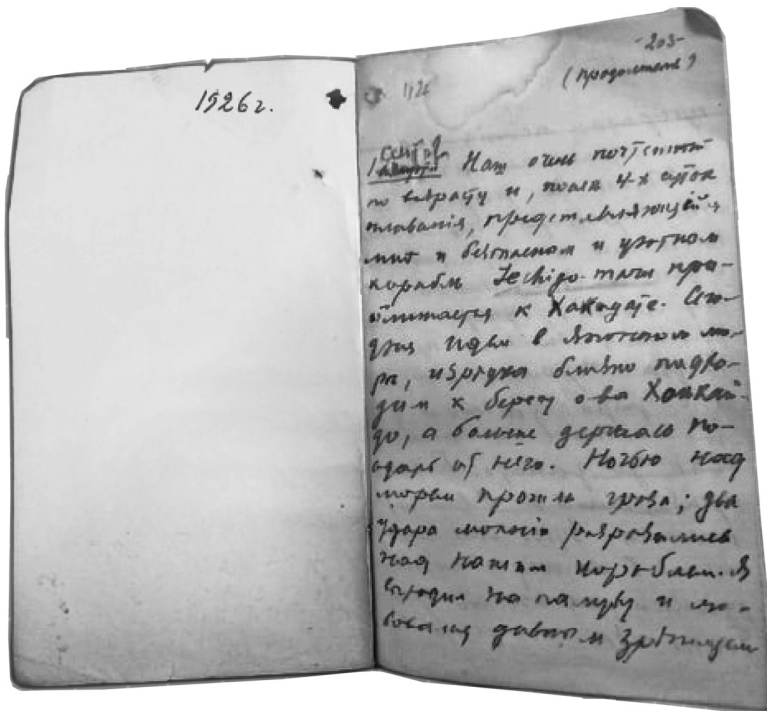 1926 г.
-203-
(продолжение)
1926
1 сент. Наш очень почтенный
по возрасту и, после 4-х суток
плавания, представляющийся
мне и безопасном и уютном
корабль Jechigo-maru при-
ближается к Хакодате. Се-
дня идем в Японском мо-
ре, изредка близко подхо-
дим к берегу о-ва Хоккай-
до, а больше держась по-
одаль от него. Ночью над
морем прошла гроза; два
удара молнии разразились
над нашим кораблем. Я
выходил на палубу и лю-
бовался дивным зрелищем